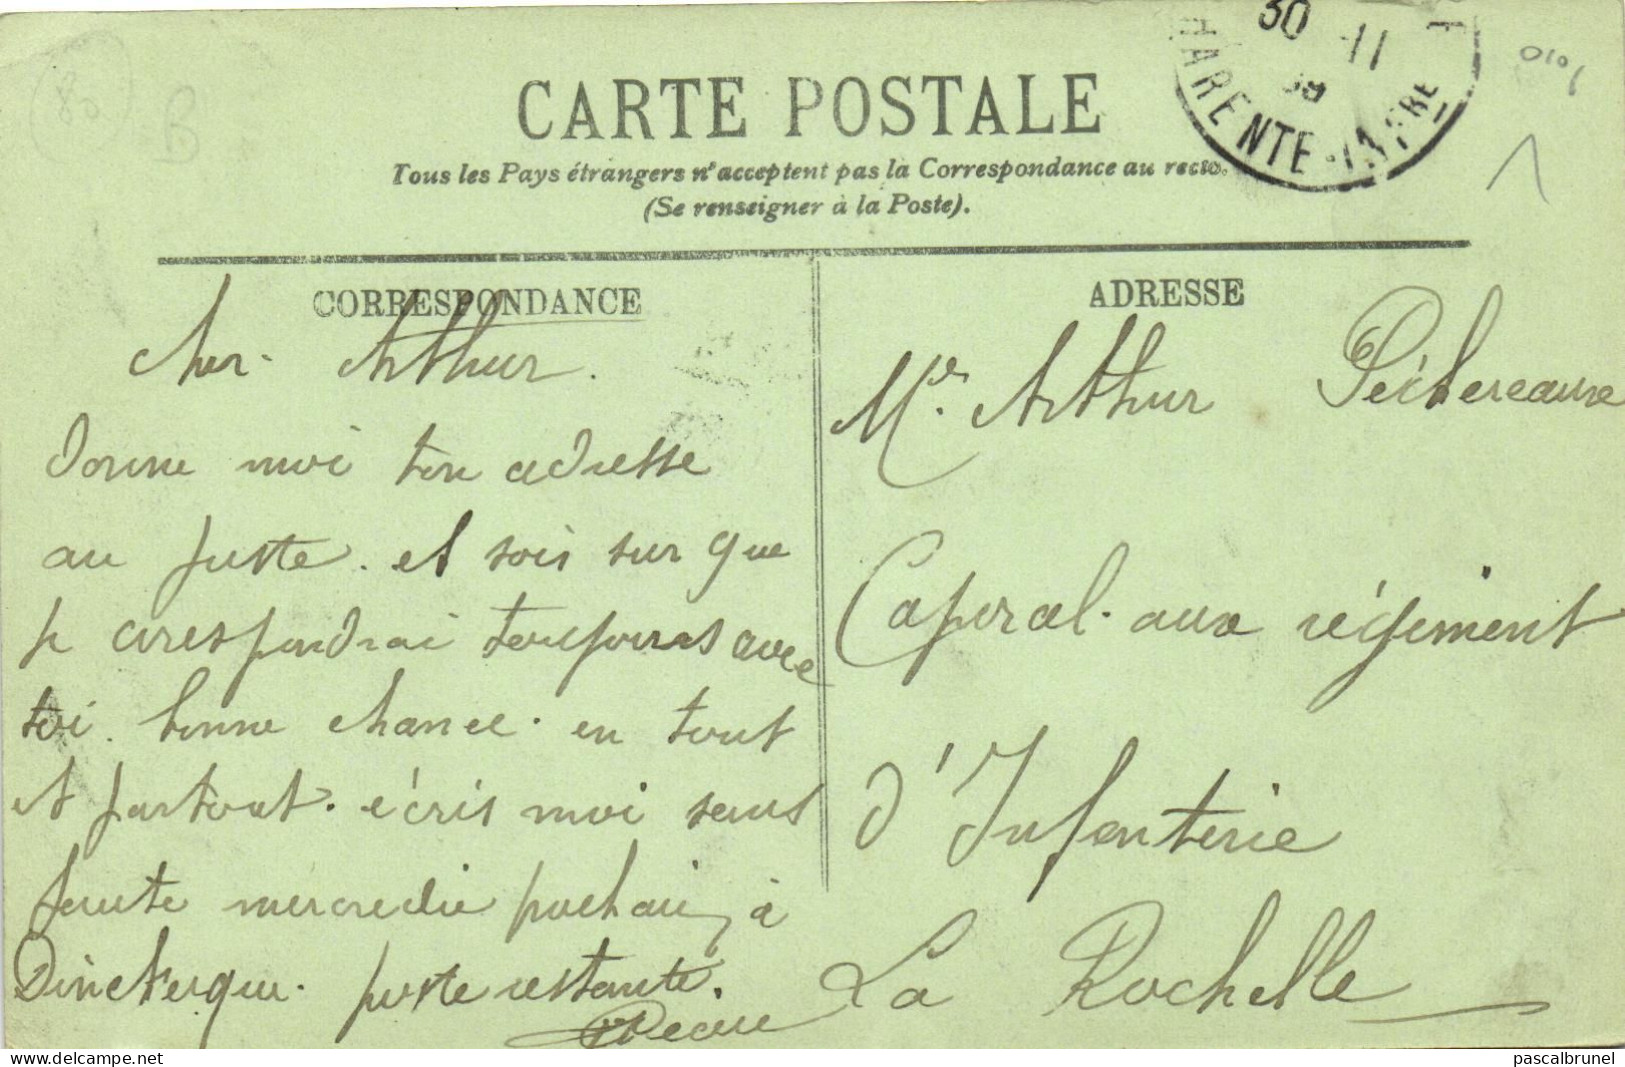 30 -11
09
HARENTE-INFRE
CARTE POSTALE
Tous les Pays étrangers n'acceptent pas la Correspondance au recto.
(Se renseigner à la Poste).
CORRESPONDANCE
cher Arthur.
donne moi ton adresse
au juste. et sois sur que
je corespondrai toujours avec
toi. bonne chance. en tout
et partout. écris moi sans
faute mercredie prochain à
Dinckerque. poste restante.
ADRESSE
Mr. Arthur Péchereaux
Caporal. aux régiment
d'Infenterie
La Rochelle
pascalbrunel